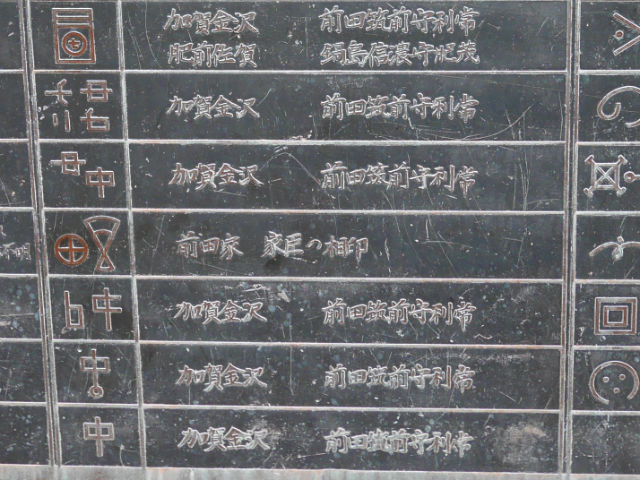 加賀金沢 前田筑前守利常
肥前佐賀 鍋島信濃守肥茂
加賀金沢 前田筑前守利常
加賀金沢 前田筑前守利常
前田家 家臣の相印
不明
加賀金沢 前田筑前守利常
加賀金沢 前田筑前守利常
加賀金沢 前田筑前守利常